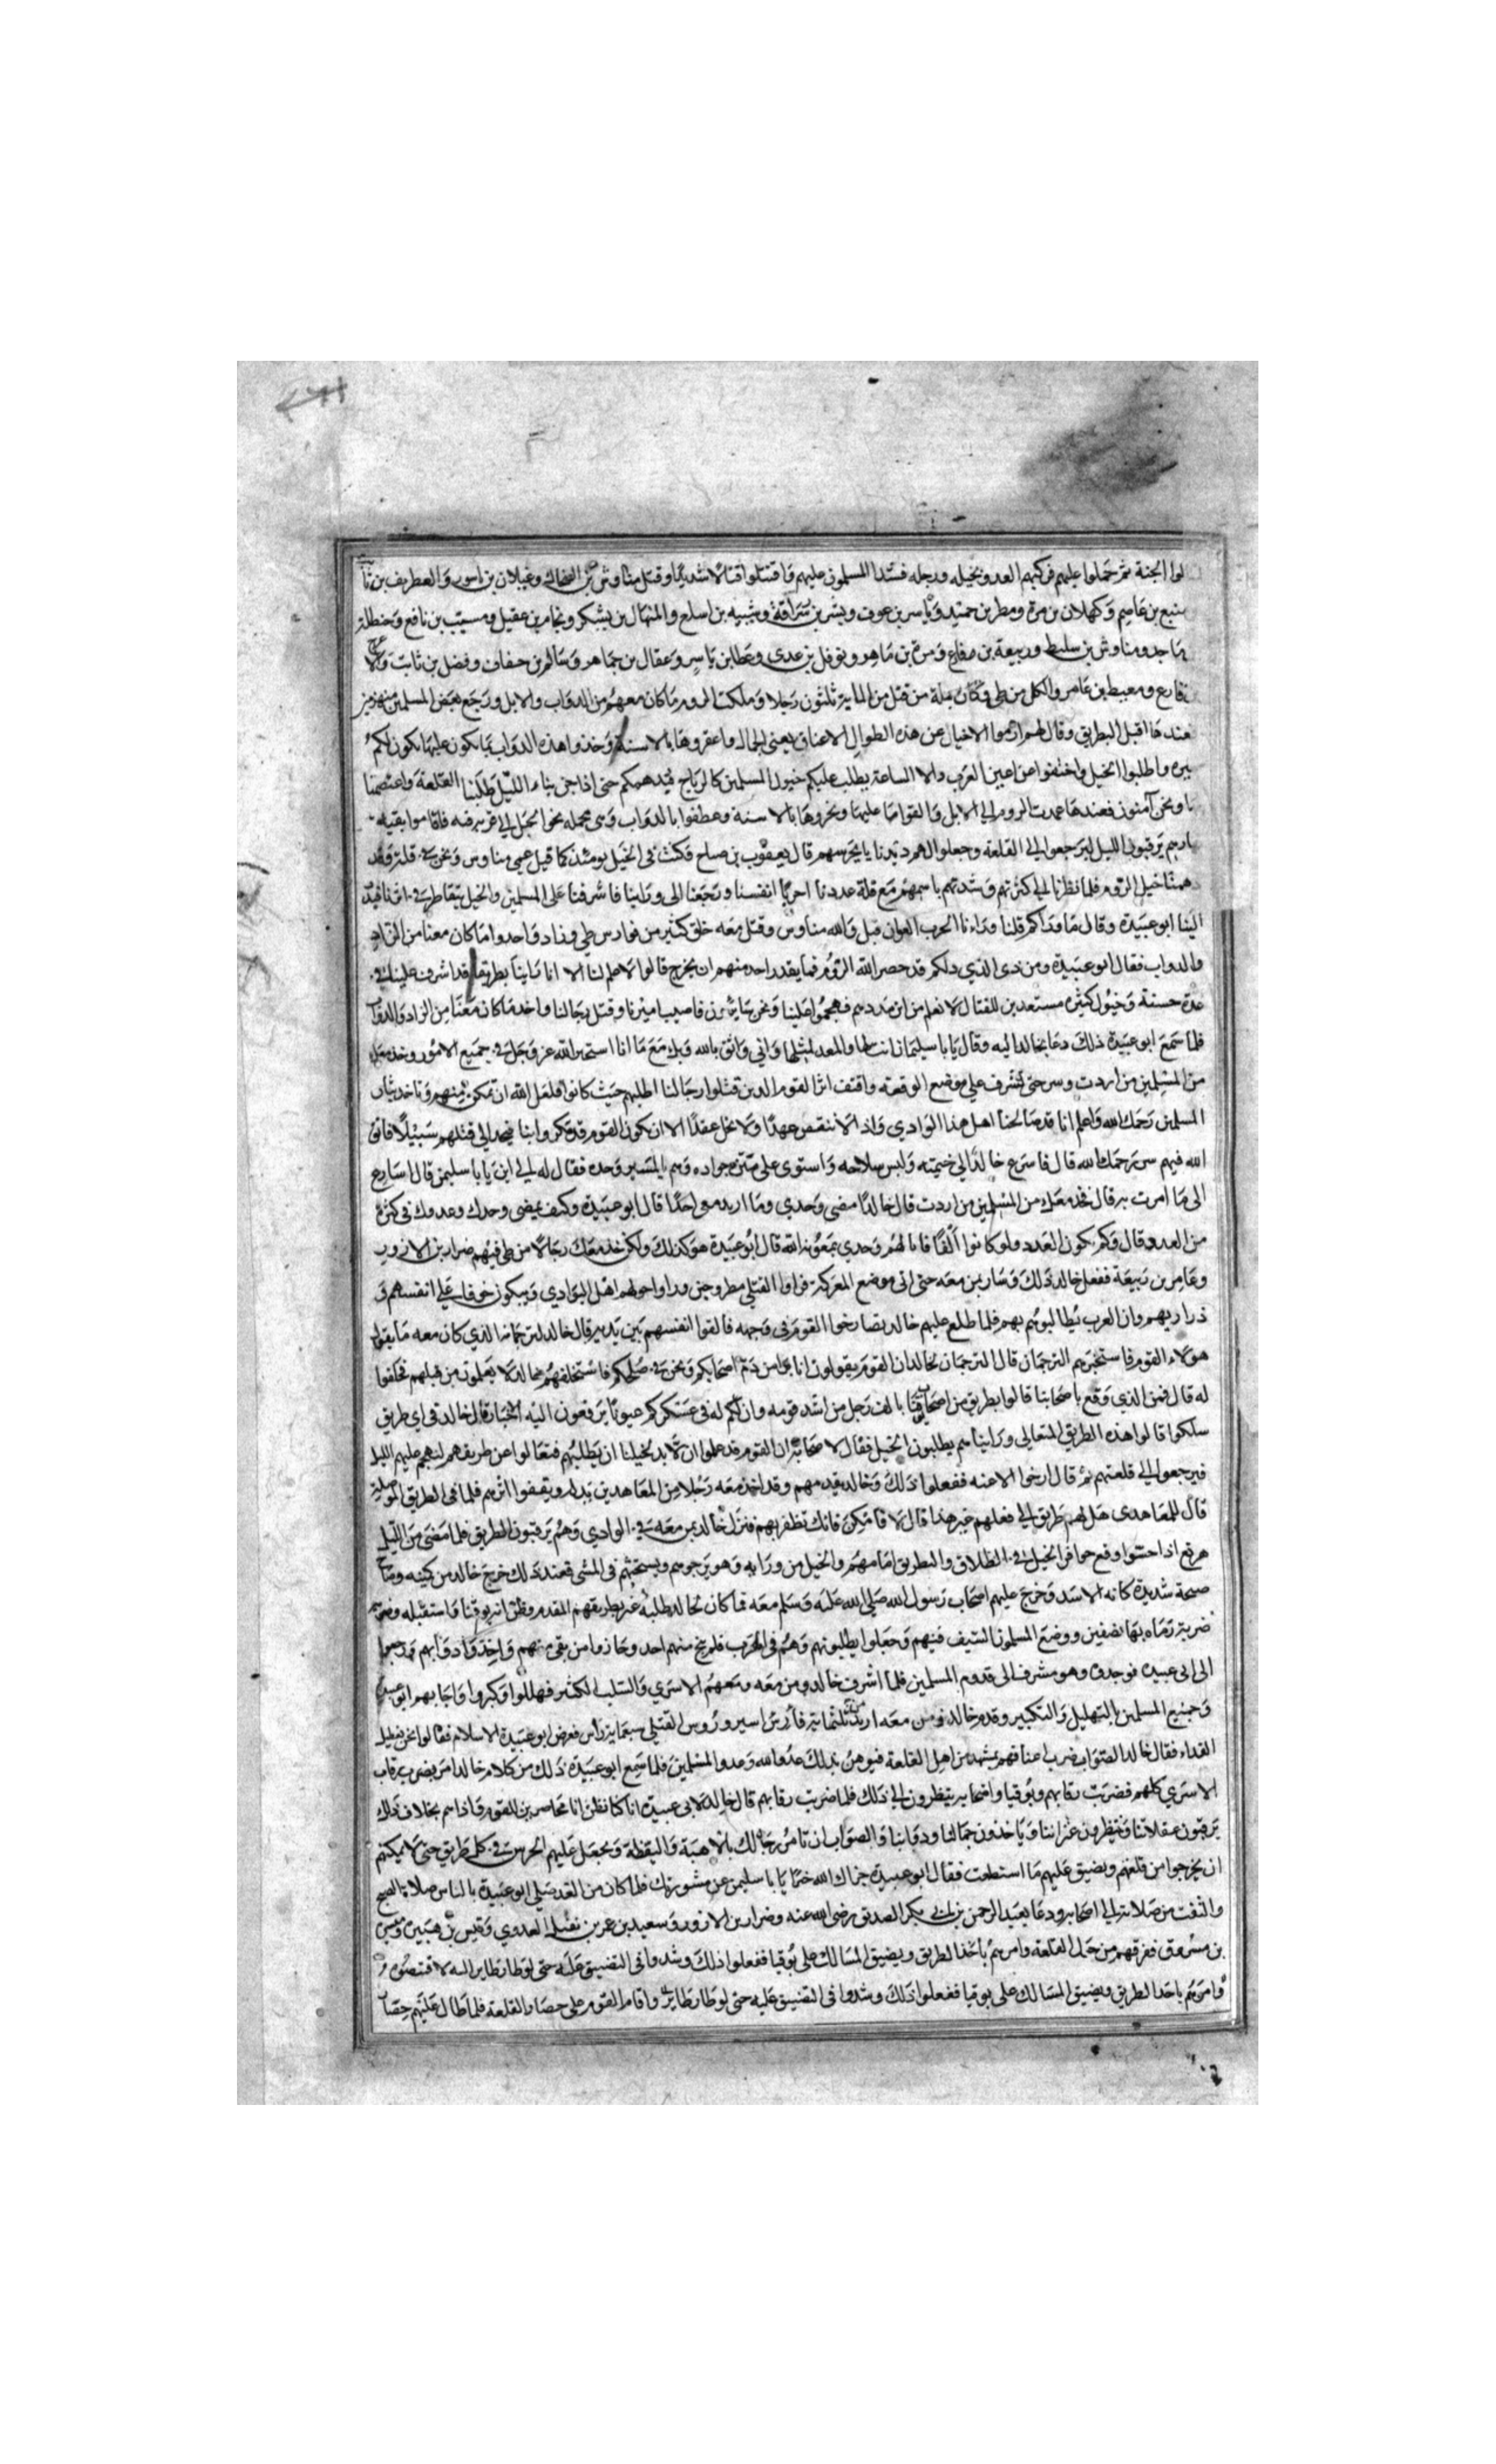 لوا الجنة ثم حملوا عليهم فركبهم العدو بخيله ورجله فشد المسلمون عليهم واقتتلوا قتالا شديدا وقتل مناوش بن الضحاك وغيلان بن اسور والغطريف بن ثا
منيع بن عاصم وكهلان بن مرة ومطر بن حميد وياسر بن عوف وبشر بن سراقة وشيبه بن اسلع والمنهال بن يشكر ونجام بن عقيل ومسيب بن نافع وحنظلة
ماجد ومناوش بن سليط وربيعة بن مفلع ومرة بن ماهر ونوفل بن عدى وعطا بن ياسر وعقال بن جماهر وسالم بن خفاف وفضل بن ثابت
قارع ومعبط بن عامر والكل من طى وكان جملة من قتل من المايه ثلثون رجلا وملكت الروم ما كان معهم من الدواب والابل ورجع بعض المسلمين منهزمين
فعندها اقبل البطريق وقال لهم ارموا الاخيال عن هذه الطوال الاعناق يعنى الجمال واعقروها بالاسنة وخذوا هذه الدواب بما يكون عليها يكون لكم
ميره واطلبوا الجبل واختفوا عن اعين العرب والا الساعة يطلب عليكم خيول المسلمين كالرياح فيدهمكم حتى اذا جن بنا الليل طلبنا القلعة واعتصمنا
بها ونحن آمنون فعندها عمدت الروم الى الابل والقوا ما عليها ونحروها بالاسنة وعطفوا بالدواب وهى محمله نحو الجبل الى قريه فيه فاقاموا بقيه
نهارهم يرقبون الليل ليرجعوا الى القلعة وجعلوا لهم ديدبانا يحرسهم قال يعقوب بن صباح فكنت فى الخيل يومئذ كما قيل عمى مناوس ونحن فى قلة وقد
دهمتنا خيل الروم فلما نظرنا الى كثرتهم وشدة باسهم مع قلة عددنا احرنا انفسنا ورجعنا الى ورائنا فاشرفنا على المسلمين والخيل تتقاطر فى اثرنا فبدر
الينا ابو عبيدة وقال ما وراكم قلنا وراءنا الحرب العوان قتل والله مناوس وقتل معه خلق كثير من فوارس طى وزاد واحدوا ما كان معنا من الزاد
والدواب فقال ابو عبيدة ومن ذى الذي دلكم قد حصر الله الروم فما يقدر احد منهم ان يخرج قالوا لا علم لنا الا انا راينا بطريقا قد اشرف علينا فى
عدة حسنة وخيول كثيره مستعدين للقتال لا نعلم من اين مددهم فهجموا علينا ونحن سايرون فاصيب اميرنا وقتل رجالنا واخذ ما كان معنا من الزاد والدواب
فلما سمع ابو عبيدة ذلك دعا بخالد اليه وقال يا با سليمان انت لها والمعد لمثلها واني واثق بالله وبك مع ما انا استخير الله عز وجل فى جميع الامور وخذ معك
من المسلمين من اردت وسر حتى تشرف على موضع الوقعة واقتف اثار القوم الذين قتلوا رجالنا اطلبهم حيث كانوا فلعل الله ان تمكن منهم وتاخذ بثار
المسلمين رحمك الله واعلم انا قد صالحنا اهل هذا الوادي واذ لا ننقض عهدا ولا نحل عقدا الا ان يكون القوم قد مكروا بنا فنجد الى قتلهم سبيلا فاتق
الله فيهم سر رحمك الله قال فاسرع خالد الى خيمته ولبس سلاحه واستوى على متن جواده وهم بالمسير وحده فقال له الى اين يا با سليمن قال اسارع
الى ما امرت به قال خذ معك من المسلمين من اردت قال خالد امضى وحدي وما اريد معى احدا قال ابو عبيدة وكيف تمضى وحدك وعدوك فى كثرة
من العدد وقال وكم يكون العدد ولو كانوا الفا فانا لهم وحدي بمعونة الله قال ابو عبيدة هو كذلك ولكن خذ معك رجالا من طى فيهم ضرار بن الازور
وعامر بن ربيعة ففعل خالد ذلك وسار بمن معه حتى اتى موضع المعركة فراوا القتلى مطروحين وراوا حولهم اهل الوادي ويبكون خوفا على انفسهم و
ذراريهم وان العرب يطالبونهم بهم فلما طلع عليهم خالد تصارخوا القوم فى وجهه فالقوا انفسهم بين يديه قال خالد لترجمانه الذي كان معه ما يقولوا
هولاء القوم فاستخبرهم الترجمان قال الترجمان لخالد ان القوم يقولون انا برا من دم اصحابكم ونحن فى صلحكم فاستحلفهم خالد لا يعلمون من قتلهم فحلفوا
له قال فمن الذي وقع باصحابنا قالوا بطريق من اصحاب يوقنا بالف رجل من اشد قومه وان لكم له فى عسكركم عيونا يرفعون اليه الاخبار قال خالد فى اي طريق
سلكوا قالوا هذه الطريق المتعالى وراينا هم يطلبون الجبل فقال لاصحابه ان القوم قد علموا ان لا بد لخيلنا ان يطلبهم فتعالوا عن طريقهم لنهجم عليهم الليل
فيرجعوا الى قلعتهم ثم قال ارخوا الاعنه ففعلوا ذلك وخالد يقدمهم وقد اخذ معه رجلا من المعاهدين يدله ويقتفوا اثرهم فلما فى الطريق
قال للمعاهدى هل لهم طريق الى قلعتهم غير هذا قال لا فامكث فانك تظفر بهم فنزل خالد بمن معه فى الوادي وهم يرقبون الطريق فلما مضى من الليل
هو واذا احسوا وقع حوافر الخيل فى الظلاق والبطريق امامهم والخيل من ورايه وهو يزجرهم ويستحثهم فى المشى فعند ذلك خرج خالد من كمينه وصاح
صيحة شديدة كانه الاسد وخرج عليهم اصحاب رسول الله صلى الله عليه وسلم معه فما كان لخالد طلبة غير بطريقهم المقدم وظن انه يوقنا فاستقبله وضربه
ضربة رماه بها نصفين ووضع المسلمون السيف فيهم وجعلوا يطلبونهم وهم فى الهرب فلم ينج منهم احد وحازوا من بقى منهم واخذوا دوابهم ورجعوا
الى ابى عبيده فوجدوه وهو مشرف الى قدوم المسلمين فلما اشرف خالد ومن معه ومعهم الاسرى والسلب الكثير فهللوا وكبروا واجابهم ابو عبيدة
وجميع المسلمين بالتهليل والتكبير وقدم خالد ومن معه اريد من ثلثماية فارس اسير وروس القتلى سبعماية راس فعرض ابو عبيدة الاسلام فقالوا نحن نعطيك
الفداء فقال خالد الصواب ضرب اعناقهم بمشهد من اهل القلعة فيوهن بذلك عدو الله وعدو المسلمين فلما سمع ابو عبيدة ذلك من كلام خالد امر بضرب رقاب
الاسرى كلهم فضربت رقابهم ويوقيا واصحابه ينظرون الى ذلك فلما ضربت رقابهم قال خالد لابى عبيدة انا كنا نظن انا محاصرين للقوم فاذا هم بخلاف ذلك
يرقبون غفلاتنا وينتظرون غراتنا وياخذون جمالنا ودوابنا والصواب ان تامر رجالك بالاهبة واليقظة وتجعل عليهم الحرس فى كل طريق حتى لا يمكنهم
ان يخرجوا من قلعتهم ويضيق عليهم ما استطعت فقال ابو عبيدة جزاك الله خيرا يا با سليمن عن مشورتك فلما كان من الغد صلى ابو عبيدة بالناس صلاة الصبح
والتفت من صلاته الى اصحابه ودعا بعبد الرحمن بن ابى بكر الصديق رضى الله عنه وضرار بن الازور وسعيد بن عمر بن نفيل العدوي وقيس بن هبيره وميسرة
بن مسروق ففرقهم من حول القلعة وامرهم باخذ الطريق ويضيق المسالك على يوقيا ففعلوا ذلك وشدوا فى التضييق عليه حتى لو طار طاير اليه لاقتنصوه و
وامرهم باخذ الطريق ويضيق المسالك على يوقيا ففعلوا ذلك وشدوا فى التضييق عليه حتى لو طار طاير واقام القوم على حصار القلعة فلما طال عليهم حصار